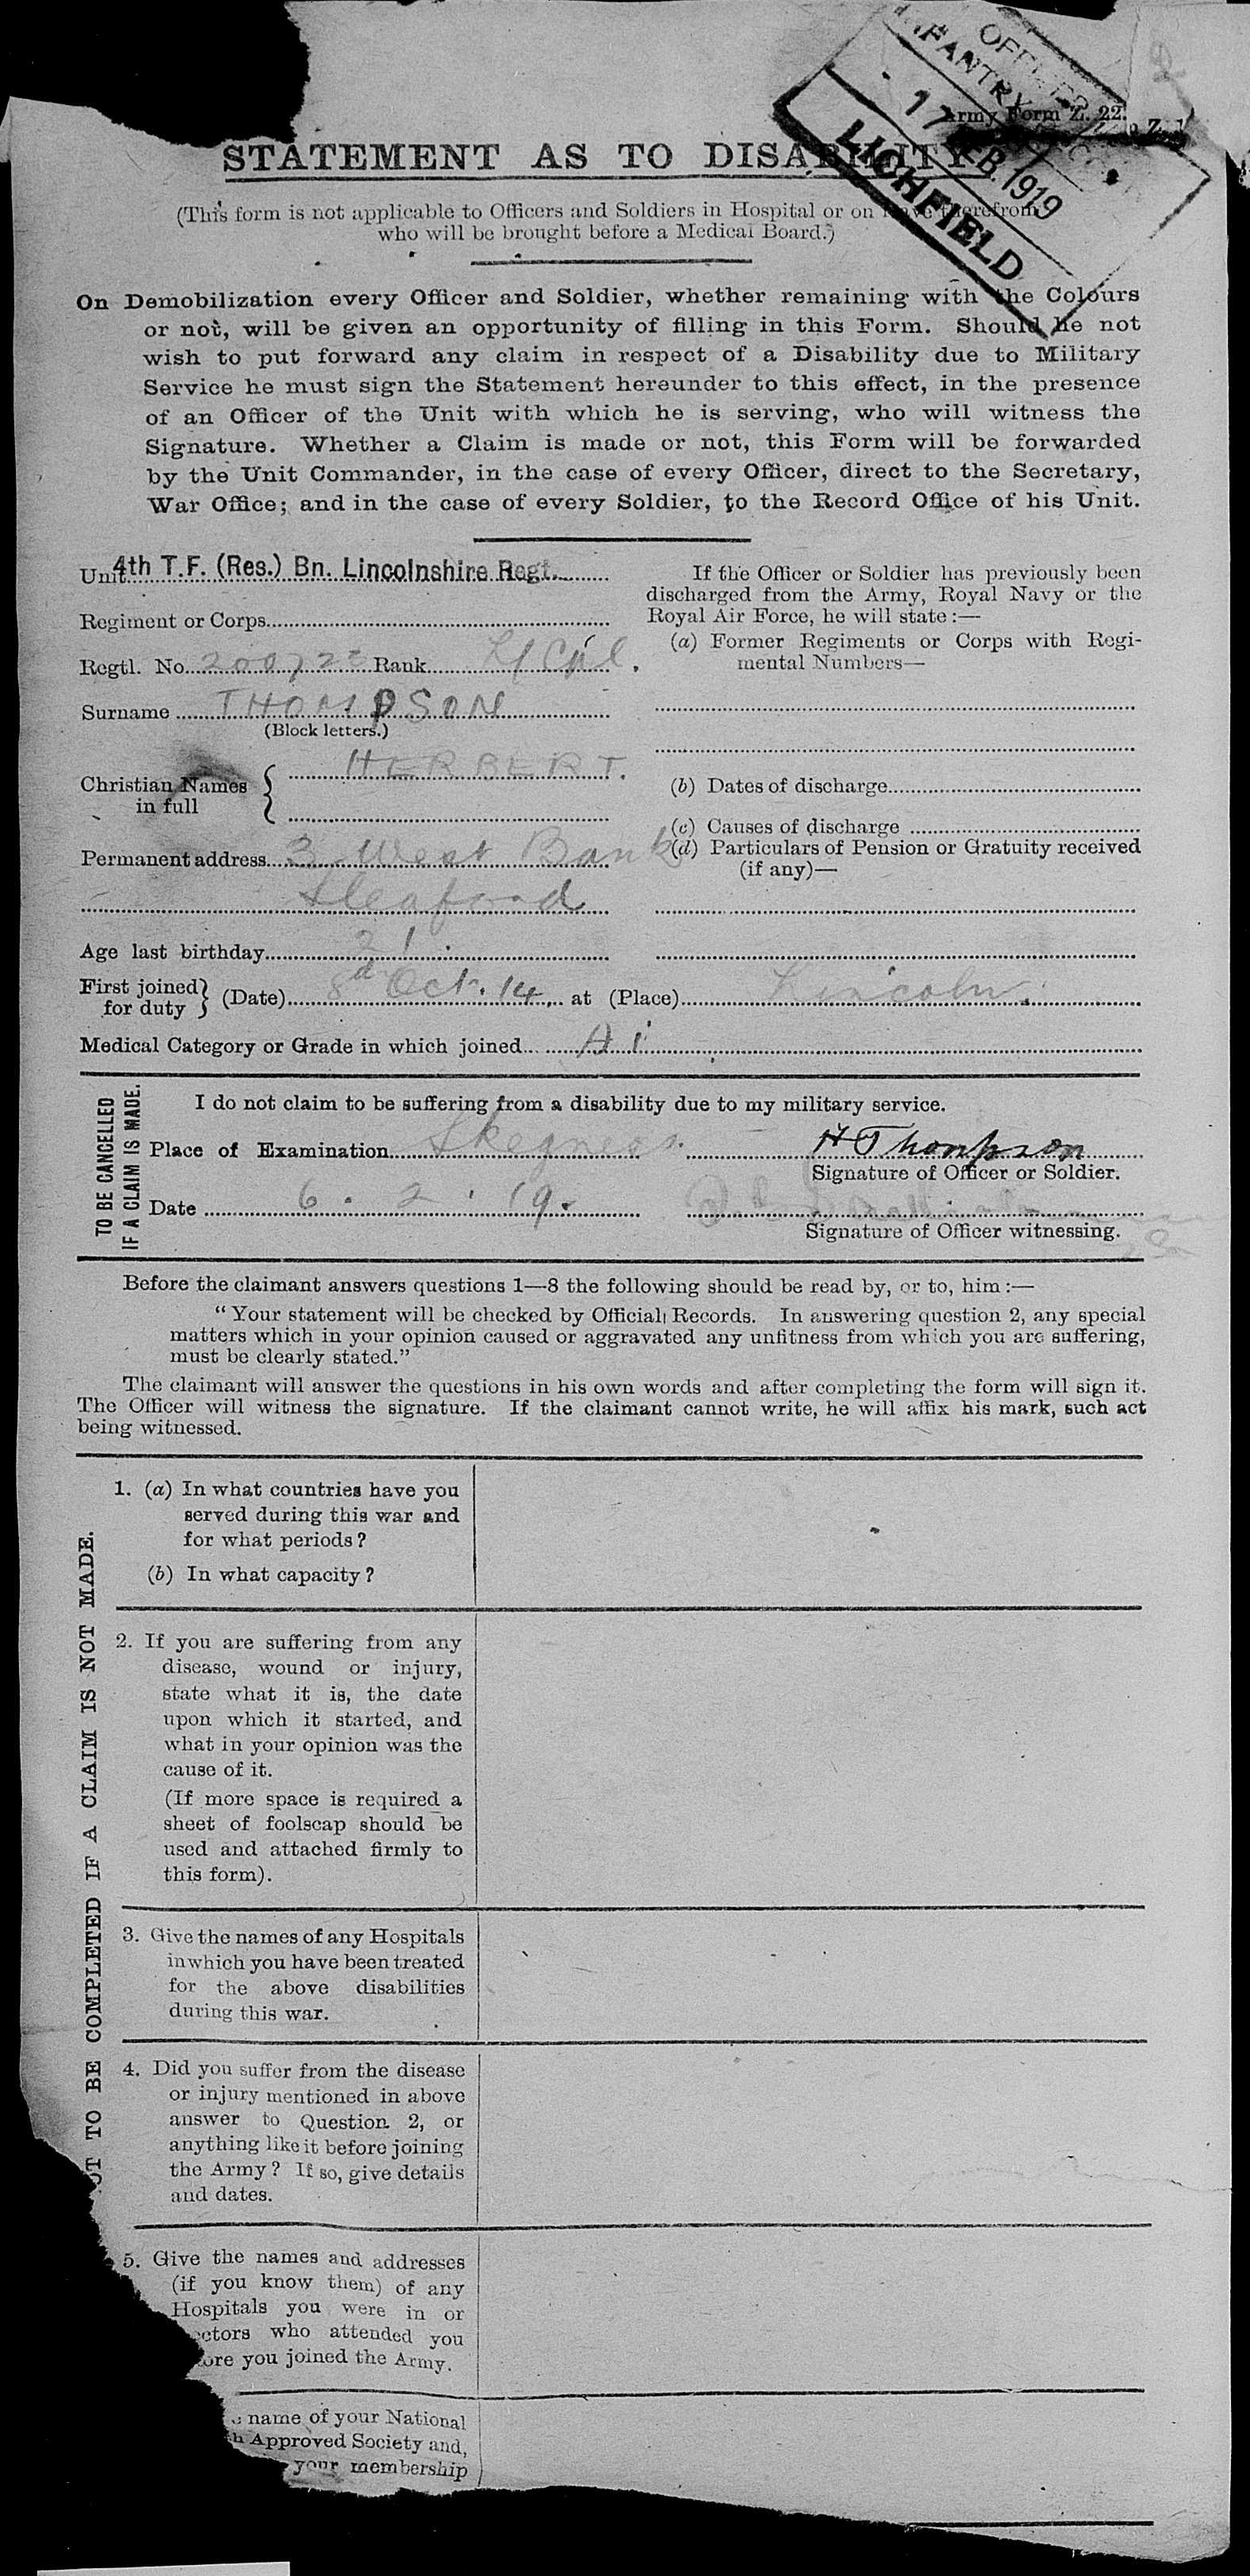 Army Form Z. 22.
INFANTRY
17 FEB. 1919
LICHFIELD
STATEMENT AS TO DISABILITY
(This form is not applicable to Officers and Soldiers in Hospital or on leave therefrom
who will be brought before a Medical Board.)
On Demobilization every Officer and Soldier, whether remaining with the Colours
or not, will be given an opportunity of filling in this Form. Should he not
wish to put forward any claim in respect of a Disability due to Military
Service he must sign the Statement hereunder to this effect, in the presence
of an Officer of the Unit with which he is serving, who will witness the
Signature. Whether a Claim is made or not, this Form will be forwarded
by the Unit Commander, in the case of every Officer, direct to the Secretary,
War Office; and in the case of every Soldier, to the Record Office of his Unit.
Unit 4th T.F. (Res.) Bn. Lincolnshire Regt.
Regiment or Corps
Regtl. No. Rank L/Cpl.
Surname THOMPSON
(Block letters.)
Christian Names in full HERBERT.
Permanent address 3 West Bank
Sleaford
Age last birthday 21.
If the Officer or Soldier has previously been
discharged from the Army, Royal Navy or the
Royal Air Force, he will state:—
(a) Former Regiments or Corps with Regi-
mental Numbers—
(b) Dates of discharge
(c) Causes of discharge
(d) Particulars of Pension or Gratuity received
(if any)—
First joined for duty } (Date) 8 Oct. 14 at (Place) Lincoln.
Medical Category or Grade in which joined A i
TO BE CANCELLED
IF A CLAIM IS MADE.
I do not claim to be suffering from a disability due to my military service.
Place of Examination Skegness. H Thompson
Signature of Officer or Soldier.
Date 6. 2. 19.
Signature of Officer witnessing.
Before the claimant answers questions 1—8 the following should be read by, or to, him:—
"Your statement will be checked by Official Records. In answering question 2, any special
matters which in your opinion caused or aggravated any unfitness from which you are suffering,
must be clearly stated."
The claimant will answer the questions in his own words and after completing the form will sign it.
The Officer will witness the signature. If the claimant cannot write, he will affix his mark, such act
being witnessed.
OT TO BE COMPLETED IF A CLAIM IS NOT MADE.
1. (a) In what countries have you
served during this war and
for what periods?
(b) In what capacity?
2. If you are suffering from any
disease, wound or injury,
state what it is, the date
upon which it started, and
what in your opinion was the
cause of it.
(If more space is required a
sheet of foolscap should be
used and attached firmly to
this form).
3. Give the names of any Hospitals
in which you have been treated
for the above disabilities
during this war.
4. Did you suffer from the disease
or injury mentioned in above
answer to Question 2, or
anything like it before joining
the Army? If so, give details
and dates.
5. Give the names and addresses
(if you know them) of any
Hospitals you were in or
octors who attended you
ore you joined the Army.
name of your National
h Approved Society and,
your membership